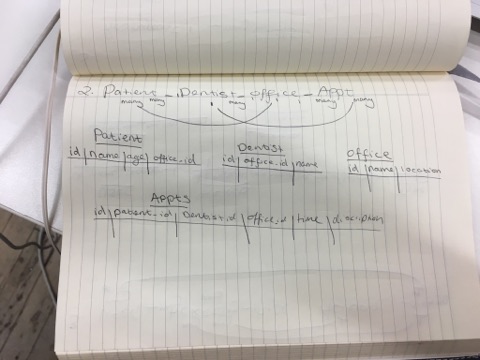 2. Patient - Dentist - office - Appt
many many many many many
Patient Dentist office
id | name | age | office-id id | office-id | name id | name | location
Appts
id | patient-id | Dentist-id | office-id | time | description